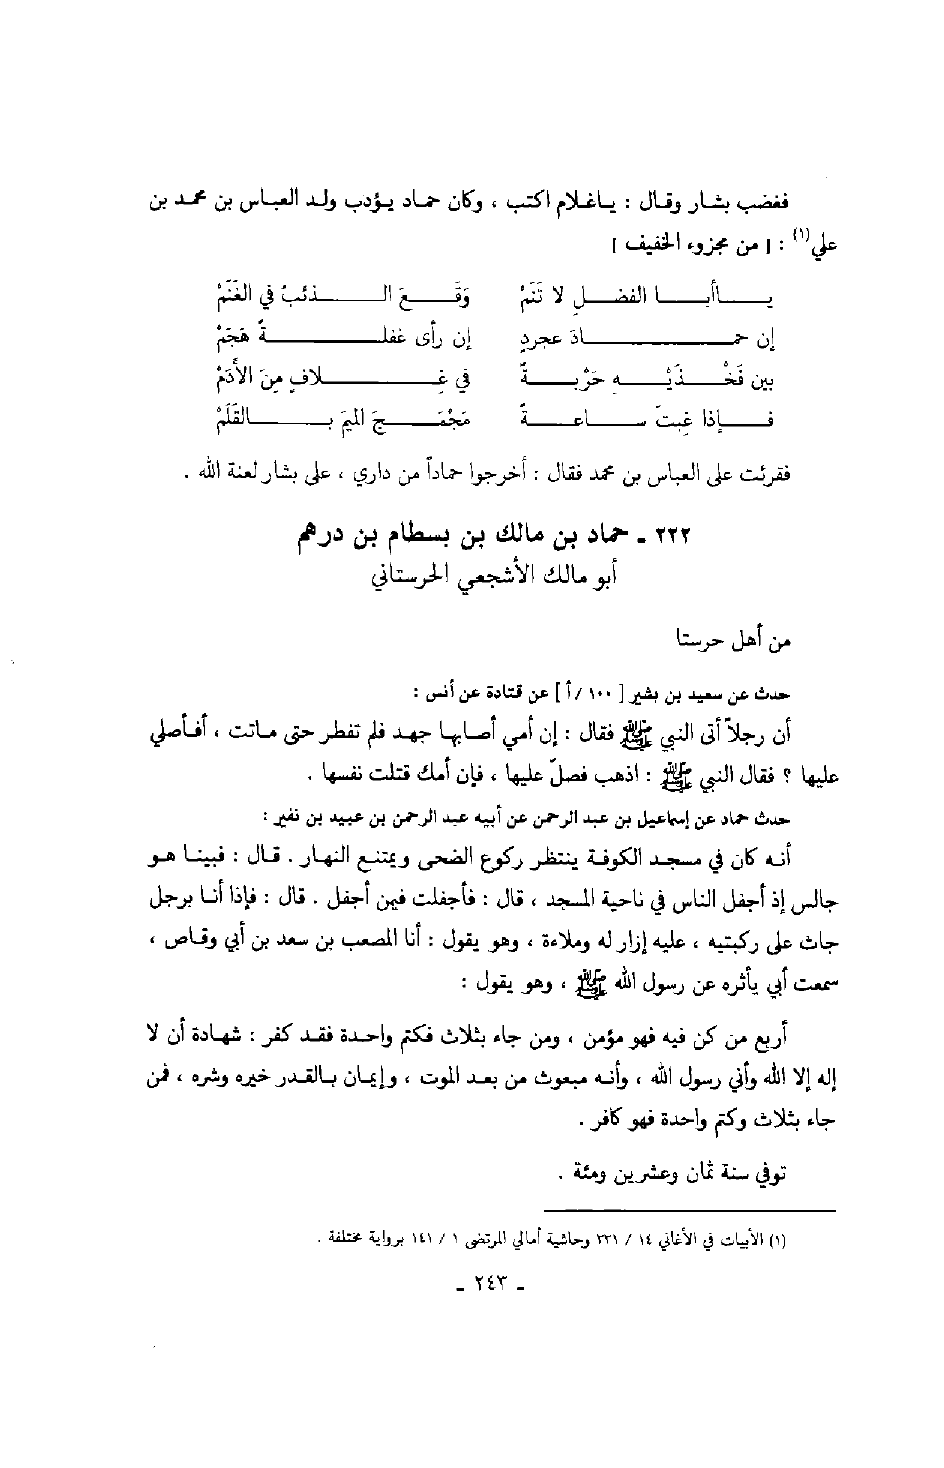 فغضب بشار وقال : ياغلام اكتب ، وكان حماد يؤدب ولد العباس بن محمد بن
علي(١) : [ من مجزوء الخفيف ]
ياأبا الفضلِ لا تَنَمْ وَقَعَ الذئبُ في الغَنَمْ
إن حمادَ عجردٍ إن رأى غفلةً هَجَمْ
بين فَخْذَيْهِ حَرْبةٌ في غِلافٍ مِنَ الأدَمْ
فإذا غبتَ ساعةً مَجْمَجَ الميمَ بالقَلَمْ
فقرئت على العباس بن محمد فقال : أخرجوا حماداً من داري ، على بشار لعنة الله .
٢٢٢ ـ حماد بن مالك بن بسطام بن درهم
أبو مالك الأشجعي الحرستاني
من أهل حرستا
حدث عن سعيد بن بشير [ ١٠٠ /أ ] عن قتادة عن أنس :
أن رجلاً أتى النبي ﷺ فقال : إن أمي أصابها جهد فلم تفطر حتى ماتت ، أفأصلي
عليها ؟ فقال النبي ﷺ : اذهب فصلّ عليها ، فإن أمك قتلت نفسها .
حدث حماد عن إسماعيل بن عبد الرحمن عن أبيه عبد الرحمن بن عبيد بن نفير :
أنه كان في مسجد الكوفة ينتظر ركوع الضحى ويمتنع النهار . قال : فبينا هو
جالس إذ أجفل الناس في ناحية المسجد ، قال : فأجفلت فيمن أجفل . قال : فإذا أنا برجل
جاث على ركبتيه ، عليه إزار له وملاءة ، وهو يقول : أنا المصعب بن سعد بن أبي وقاص ،
سمعت أبي يأثره عن رسول الله ﷺ ، وهو يقول :
أربع من كن فيه فهو مؤمن ، ومن جاء بثلاث فكتم واحدة فقد كفر : شهادة أن لا
إله إلا الله وأني رسول الله ، وأنه مبعوث من بعد الموت ، وإيمان بالقدر خيره وشره ، فمن
جاء بثلاث وكتم واحدة فهو كافر .
توفي سنة ثمان وعشرين ومئة .
(١) الأبيات في الأغاني ١٤ / ٣٣١ وحاشية أمالي المرتضى ١ / ١٤١ برواية مختلفة .
ـ ٢٤٣ ـ